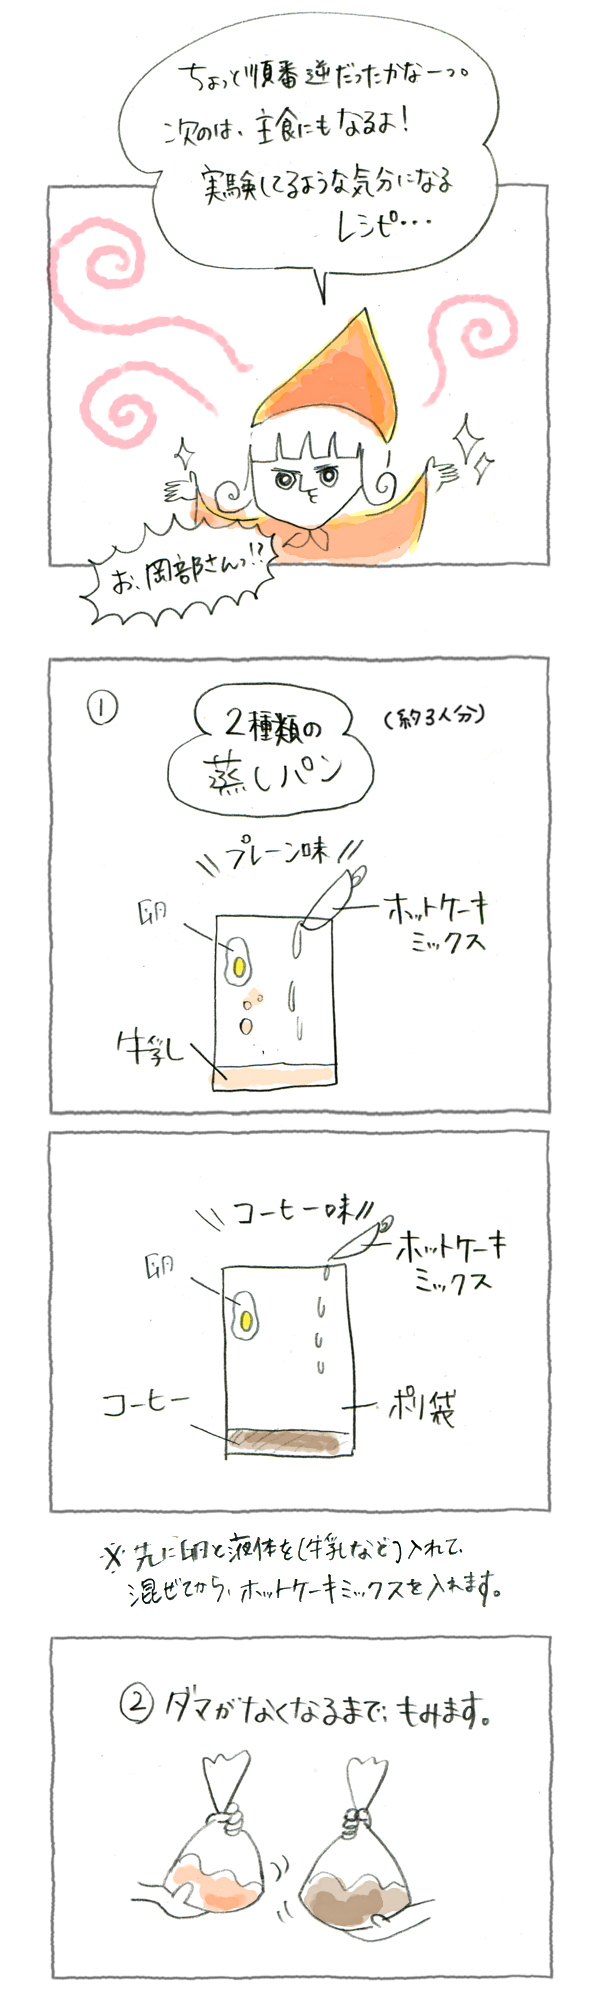 ちょっと順番逆だったかなーっ。
次のは、主食にもなるよ！
実験してるような気分になる
レシピ・・・
お、岡部さんっ!?
①
2種類の
蒸しパン
（約3人分）
\\プレーン味//
卵
ホットケーキ
ミックス
牛乳
\\コーヒー味//
卵
ホットケーキ
ミックス
コーヒー
ポリ袋
※先に卵と液体を(牛乳など)入れて、
混ぜてから、ホットケーキミックスを入れます。
②ダマがなくなるまで、もみます。